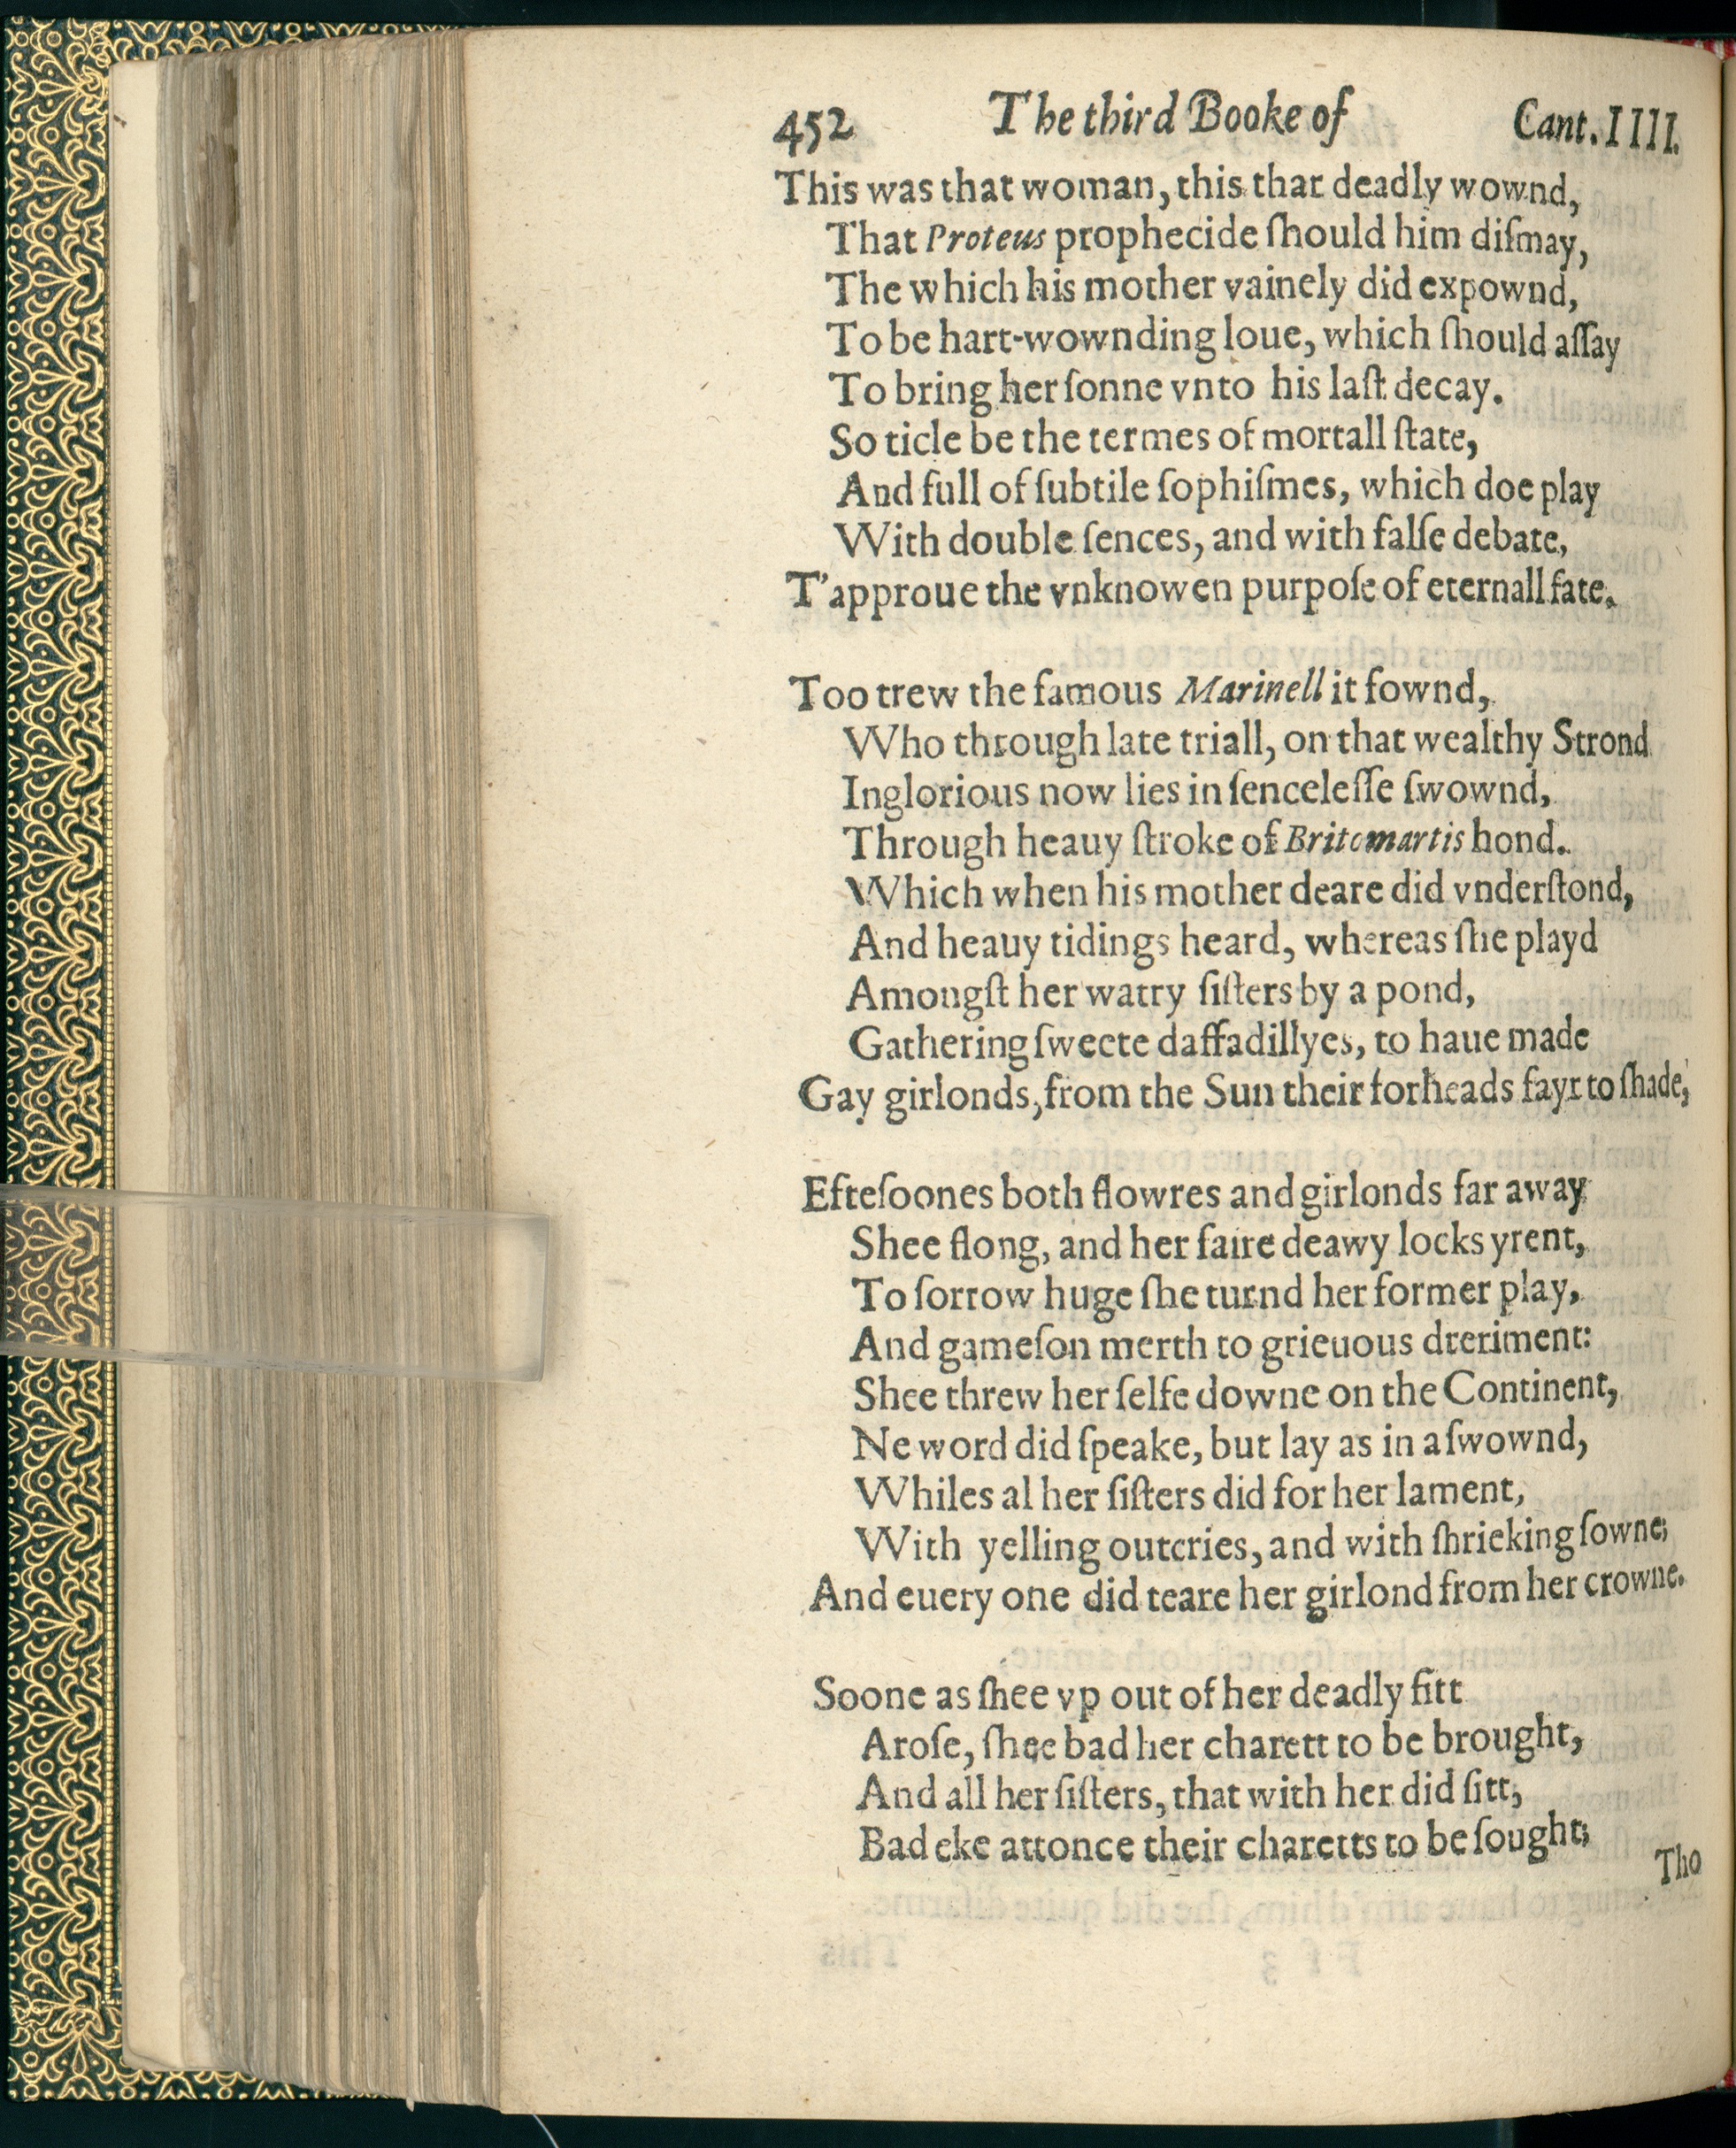 452 The third Booke of Cant. IIII.
This was that woman, this that deadly wownd,
That Proteus prophecide ſhould him diſmay,
The which his mother vainely did expownd,
To be hart-wownding loue, which ſhould aſſay
To bring her ſonne vnto his laſt decay.
So ticle be the termes of mortall ſtate,
And full of ſubtile ſophiſmes, which doe play
With double ſences, and with falſe debate,
T'approue the vnknowen purpoſe of eternall fate.
Too trew the famous Marinell it fownd,
Who through late triall, on that wealthy Strond
Inglorious now lies in ſenceleſſe ſwownd,
Through heauy ſtroke of Britomartis hond.
Which when his mother deare did vnderſtond,
And heauy tidings heard, whereas ſhe playd
Amongſt her watry ſiſters by a pond,
Gathering ſweete daffadillyes, to haue made
Gay girlonds, from the Sun their forheads fayr to ſhade,
Efteſoones both flowres and girlonds far away
Shee flong, and her faire deawy locks yrent,
To ſorrow huge ſhe turnd her former play,
And gameſon merth to grieuous dreriment:
Shee threw her ſelfe downe on the Continent,
Ne word did ſpeake, but lay as in a ſwownd,
Whiles al her ſiſters did for her lament,
With yelling outcries, and with ſhrieking ſowne;
And euery one did teare her girlond from her crowne.
Soone as ſhee vp out of her deadly fitt
Aroſe, ſhee bad her charett to be brought,
And all her ſiſters, that with her did ſitt,
Bad eke attonce their charetts to be ſought;
Tho